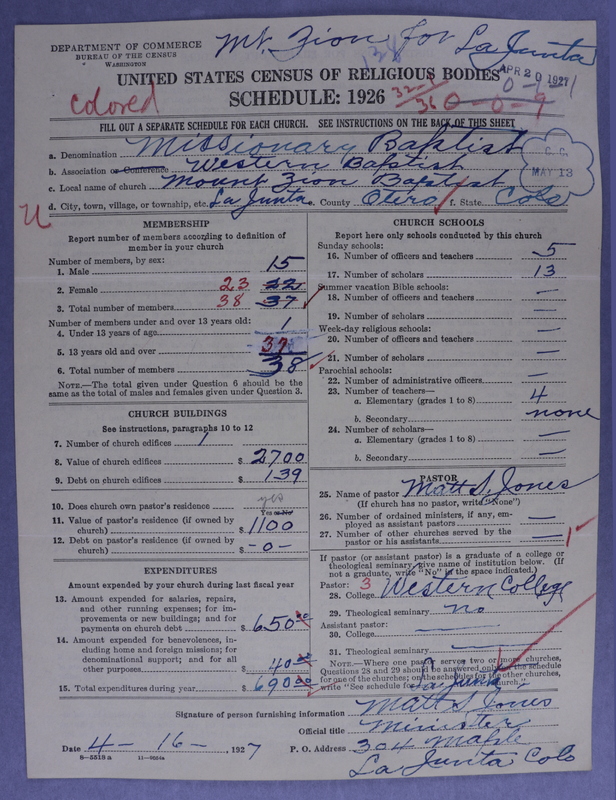 DEPARTMENT OF COMMERCE
BUREAU OF THE CENSUS
WASHINGTON
Mt. Zion for La Junta
138
APR 20 1927
UNITED STATES CENSUS OF RELIGIOUS BODIES
SCHEDULE: 1926
colored
0-0-9
FILL OUT A SEPARATE SCHEDULE FOR EACH CHURCH. SEE INSTRUCTIONS ON THE BACK OF THIS SHEET
a. Denomination Missionary Baptist
b. Association or Conference Western Baptist
C. C. MAY 13
c. Local name of church Mount Zion Baptist
d. City, town, village, or township, etc. La Junta e. County Otero f. State Colo
U
MEMBERSHIP
Report number of members according to definition of
member in your church
Number of members, by sex:
1. Male 15
2. Female 23 22
3. Total number of members 38 37
Number of members under and over 13 years old:
4. Under 13 years of age 1
5. 13 years old and over 37
6. Total number of members 38
NOTE.—The total given under Question 6 should be
same as the total of males and females given under Question 3.
CHURCH BUILDINGS
See instructions, paragraphs 10 to 12
7. Number of church edifices 1
8. Value of church edifices $ 2700
9. Debt on church edifices $ 139
10. Does church own pastor's residence yes
Yes or No
11. Value of pastor's residence (if owned by
church) $ 1100
12. Debt on pastor's residence (if owned by
church) $ -0-
EXPENDITURES
Amount expended by your church during last fiscal year
13. Amount expended for salaries, repairs,
and other running expenses; for im-
provements or new buildings; and for
payments on church debt $ 650 00
14. Amount expended for benevolences, in-
cluding home and foreign missions; for
denominational support; and for all
other purposes $ 40 00
15. Total expenditures during year $ 690 00
CHURCH SCHOOLS
Report here only schools conducted by this church
Sunday schools:
16. Number of officers and teachers 5
17. Number of scholars 13
Summer vacation Bible schools:
18. Number of officers and teachers —
19. Number of scholars —
Week-day religious schools:
20. Number of officers and teachers —
21. Number of scholars —
Parochial schools:
22. Number of administrative officers —
23. Number of teachers—
a. Elementary (grades 1 to 8) 4
b. Secondary none
24. Number of scholars—
a. Elementary (grades 1 to 8) —
b. Secondary —
PASTOR
25. Name of pastor Matt S. Jones
(If church has no pastor, write "None")
26. Number of ordained ministers, if any, em-
ployed as assistant pastors —
27. Number of other churches served by the
pastor or his assistants — 1
If pastor (or assistant pastor) is a graduate of a college or
theological seminary give name of institution below. (If
not a graduate, write "No" in the space indicated.)
Pastor: 3
28. College Western College
29. Theological seminary no
Assistant pastor:
30. College —
31. Theological seminary —
NOTE.—Where one pastor serves two or more churches,
Questions 28 and 29 should be answered only on the schedule
for one of the churches; on the schedules for the other churches,
write "See schedule for La Junta church."
Signature of person furnishing information Matt S. Jones
Official title Minister
Date 4-16- 1927 P. O. Address 304 Maple
La Junta Colo
8-5318a 11-9024a